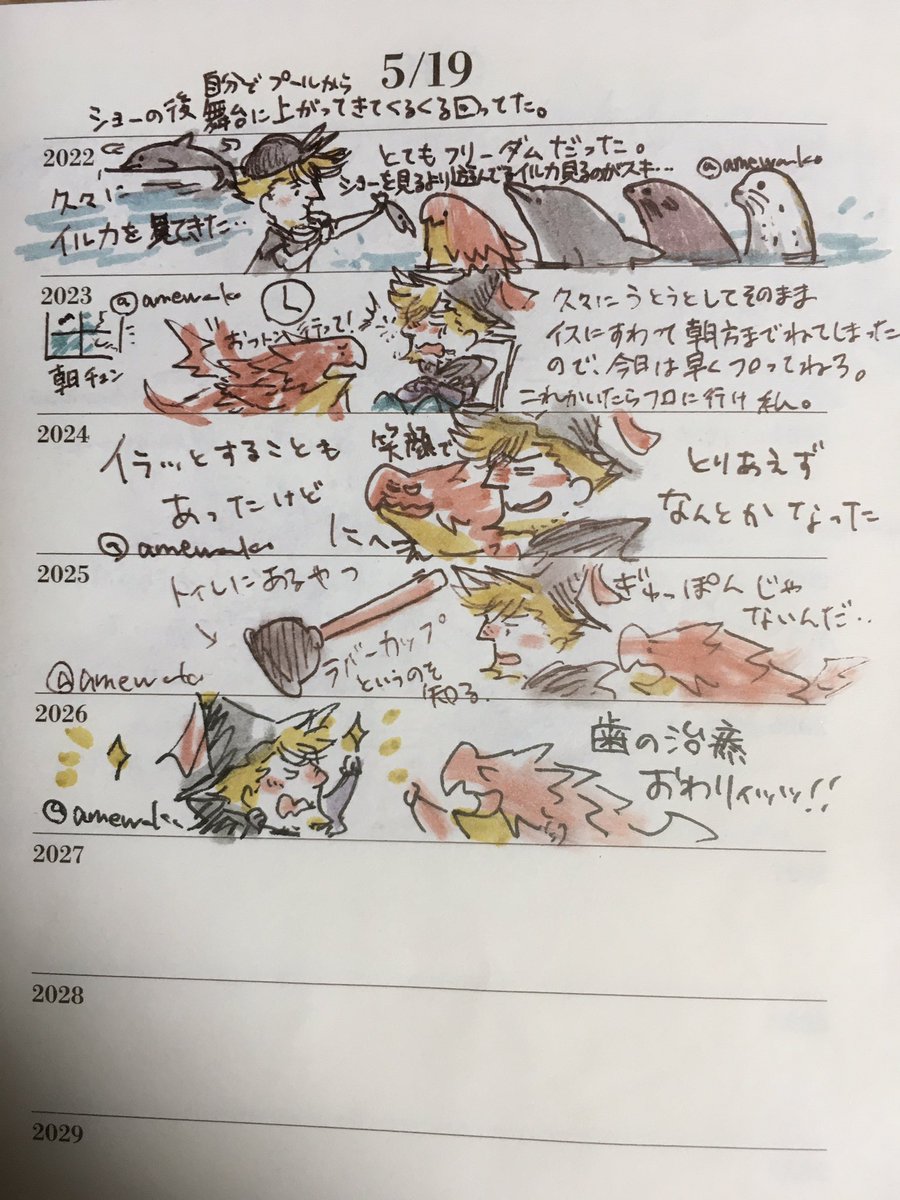 5/19
自分でプールから
ショーの後 舞台に上がってきてくるくる回ってた。
2022
とてもフリーダムだった。
ショーを見るより遊んでるイルカ見るのがスキ…
@amewako
久々に
イルカを見てきた…
2023
@amewako
朝チュン
おっトン行って!
久々にうとうとしてそのまま
イスにすわって朝方までねてしまった
ので、今日は早くフロってねろ。
これかいたらフロに行け 私。
2024
イラッとすることも
あったけど
笑顔で
@amewako
とりあえず
なんとかなった
2025
トイレにあるやつ
ラバーカップ
というのを
知る
ぎゅっぽんじゃ
ないんだ…
@amewako
2026
@amewako
歯の治療
おわりィッッッ!!
2027
2028
2029